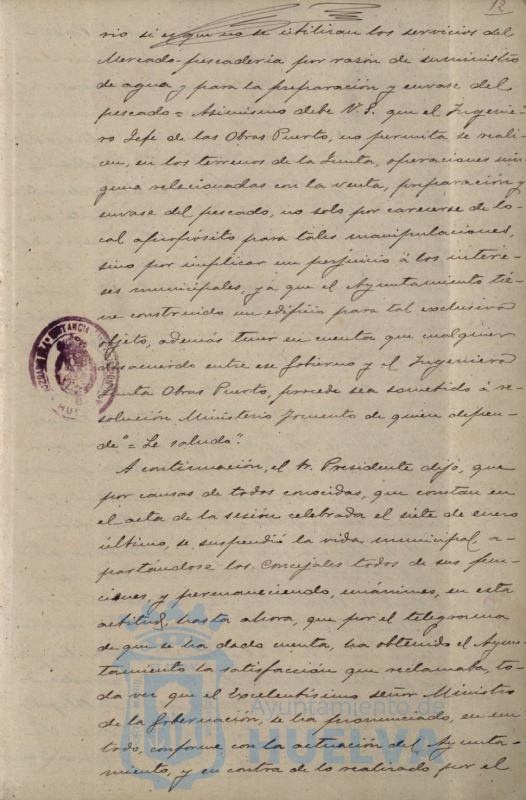 12
rio si es que no se utilizan los servicios del
Mercado-pescadería por razón de suministro
de agua y para la preparación y envase del
pescado = Asimismo debe V. S. que el Ingenie-
ro Jefe de las Obras Puerto, no permita se reali-
cen, en los terrenos de la Junta, operaciones nin-
guna relacionadas con la venta, preparación y
envase del pescado, no solo por carecerse de lo-
cal apropósito para tales manipulaciones,
sino por implicar un perjuicio á los intere-
ses municipales, ya que el Ayuntamiento tie-
ne construido un edificio para tal exclusivo
objeto, además tener en cuenta que cualquier
desacuerdo entre ese Gobierno y el Ingeniero
Junta Obras Puerto, procede sea sometido á re-
solución Ministerio Fomento de quien depen-
de" = Le saludo".
A continuación, el Sr. Presidente dijo, que
por causas de todos conocidas, que constan en
el acta de la sesión celebrada el siete de enero
último, se suspendió la vida municipal a-
partándose los Concejales todos de sus fun-
ciones, y permaneciendo, unánimes, en esta
actitud, hasta ahora, que por el telegrama
de que se ha dado cuenta, ha obtenido el Ayun-
tamiento la satisfacción que reclamaba, to-
da vez que el Excelentísimo señor Ministro
de la Gobernación, se ha pronunciado, en un
todo, conforme con la actuación del Ayunta-
miento, y en contra de lo realizado por el
Ayuntamiento de
HUELVA